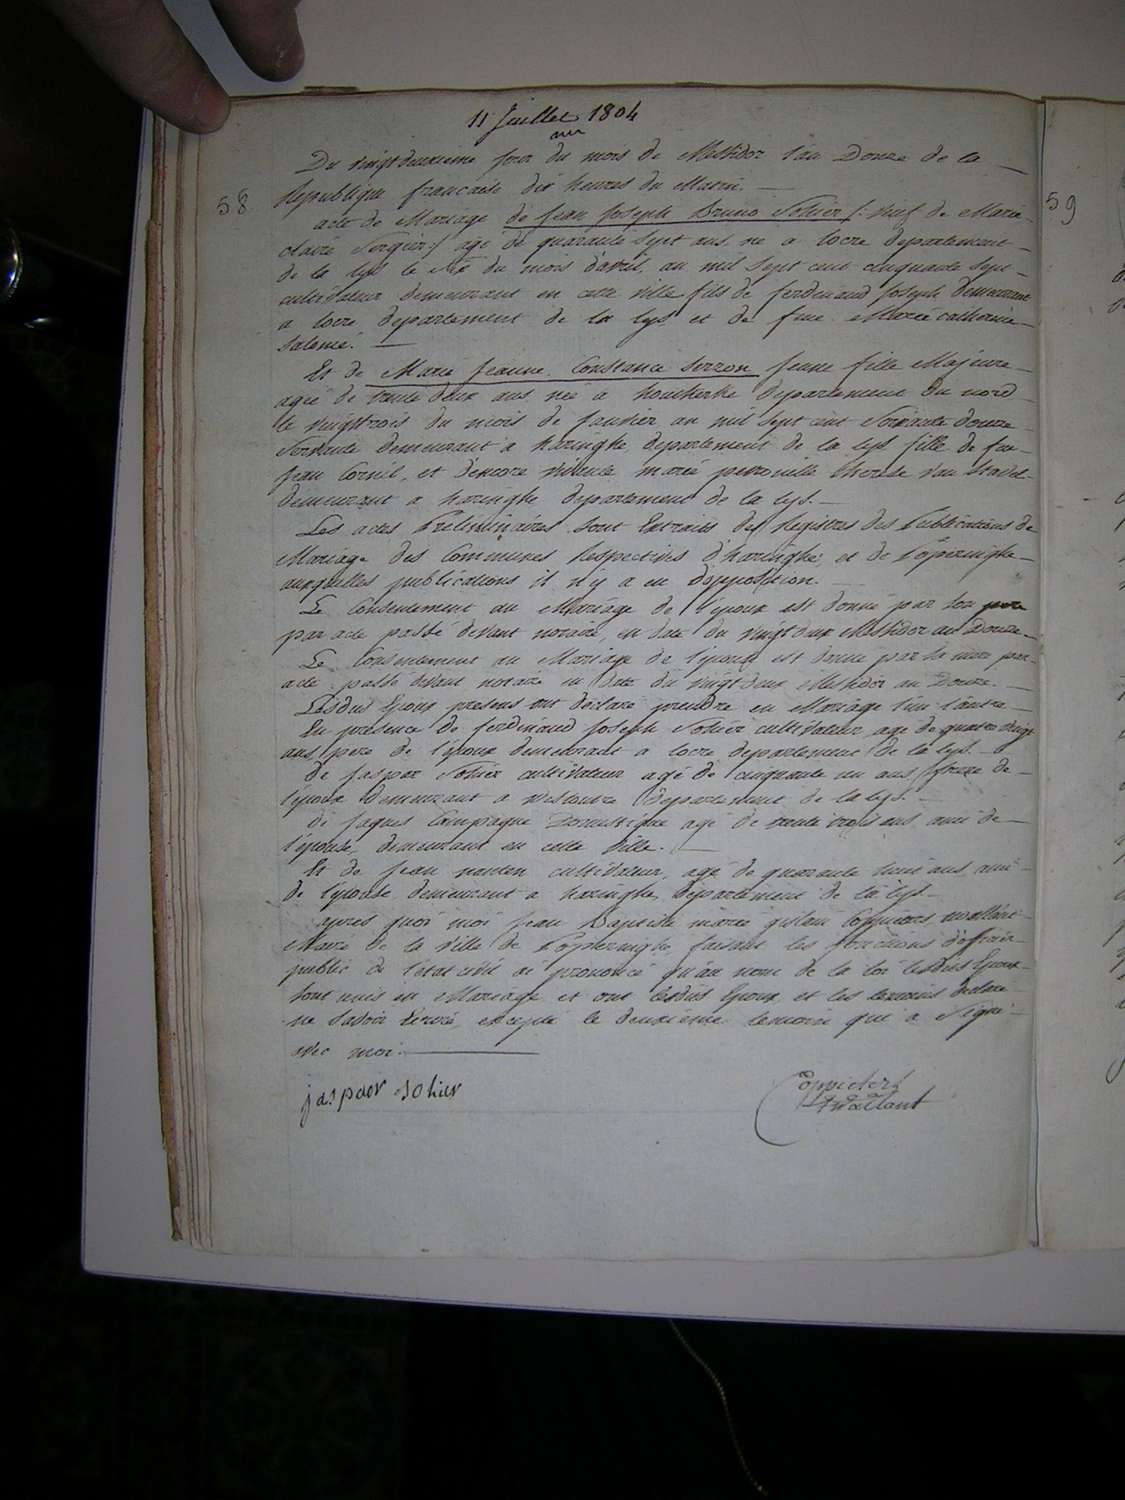 11 Juillet 1804
58
Du vingtdeuxieme jour du mois de Messidor l'an Douze de la
Republique francaise dix heures du Matin.
acte de Mariage de Jean Joseph Bruno Sohier /: veuf de Marie
claire :/ agé de quarante sept ans né a locre departement
de la lys le du mois d'avril, an mil sept cent cinquante sept
cultivateur demeurant en cette ville fils de ferdinand Joseph demeurant
a locre departement de la lys et de feue Marie catherine
Salomé.
Et de Marie Jeanne Constance Serzon jeune fille Majeure
agée de trente deux ans née a houtkerke departement du nord
le vingttrois du mois de Janvier an mil sept cent soixante douze
Servante demeurant a haringhe departement de la lys fille de feu
Jean Cornil, et d'encore vivante marie petronille therese van
demeurant a haringhe departement de la lys.
Les actes Preliminaires sont Extraits des Registres des Publications de
Mariage des Communes Respectives d'haringhe, et de Poperinghe
auxquelles publications il n'y a eu d'opposition.
Le Consentement au Mariage de l'epoux est donné par son pere
par acte passé devant notaire, en date du vingt deux Messidor an Douze.
Le Consentement au Mariage de l'epouse est donné par sa mere par
acte passé devant notaire en date du vingt deux Messidor an Douze.
Lesdits Epoux presens ont declaré prendre en Mariage l'un l'autre
En presence de ferdinand Joseph Sohier cultivateur agé de quatre vingt
ans pere de l'epoux demeurant a locre departement de la lys.
de Jaspar Sohier cultivateur agé de cinquante un ans frere de
l'epoux demeurant a westoutre departement de la lys.
de Jaques Compagne Domestique agé de trente trois ans ami de
l'epouse, demeurant en cette ville.
Et de Jean cultivateur, agé de quarante huit ans ami
de l'epouse demeurant a haringhe departement de la lys.
apres quoi moi Jean Baptiste marie Coppieters,
Maire de la ville de Poperinghe faisant les fonctions d'officier
public de l'etat civil ai prononcé qu'au nom de la loi lesdits Epoux
sont unis en Mariage et ont lesdits Epoux et les temoins declaré
ne savoir Ecrire, excepté le deuxieme temoin qui a signé
avec moi.
jaspaer sohier
Coppieters
59